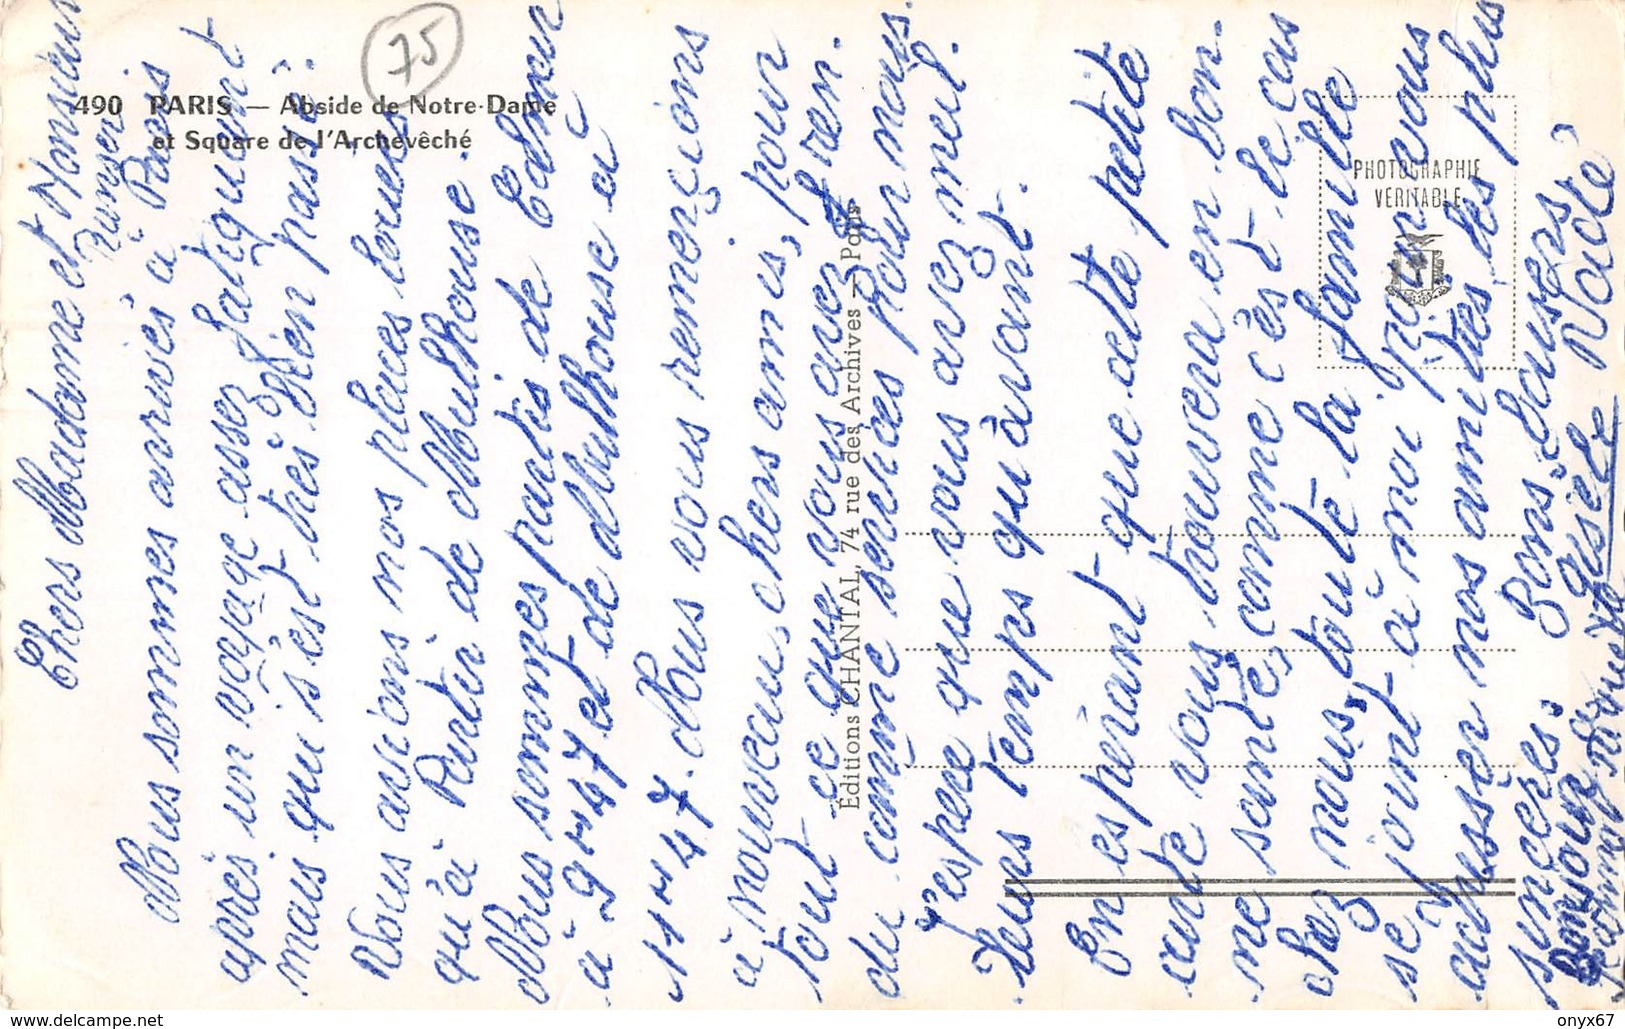 75
490 PARIS — Abside de Notre-Dame
et Square de l'Archevêché
PHOTOGRAPHIE
VÉRITABLE
Éditions CHANTAL, 74 rue des Archives — Paris
Chers Madame et Monsieur
Nous sommes arrivés à Paris
après un voyage assez fatiguant
mais qui s'est très bien passé.
Nous avions nos places louées
qu'à Partir de Mulhouse.
Nous sommes partis de Colmar
à 9H47 et de Mulhouse à
11H47. Nous vous remerçions
à nouveau, chers amis, pour
tout ce que vous avez
du comme services pour nous.
J'espère que vous avez meil.
leurs temps qu'àvant.
En espérant que cette petite
carte vous trouvera en bon.
ne santé, comme c'est le cas
chez nous, toute la famille
se joint à moi pour vous
adresser nos amitiés les plus
sincères. Bons baisers
Gisèle
Bonjour